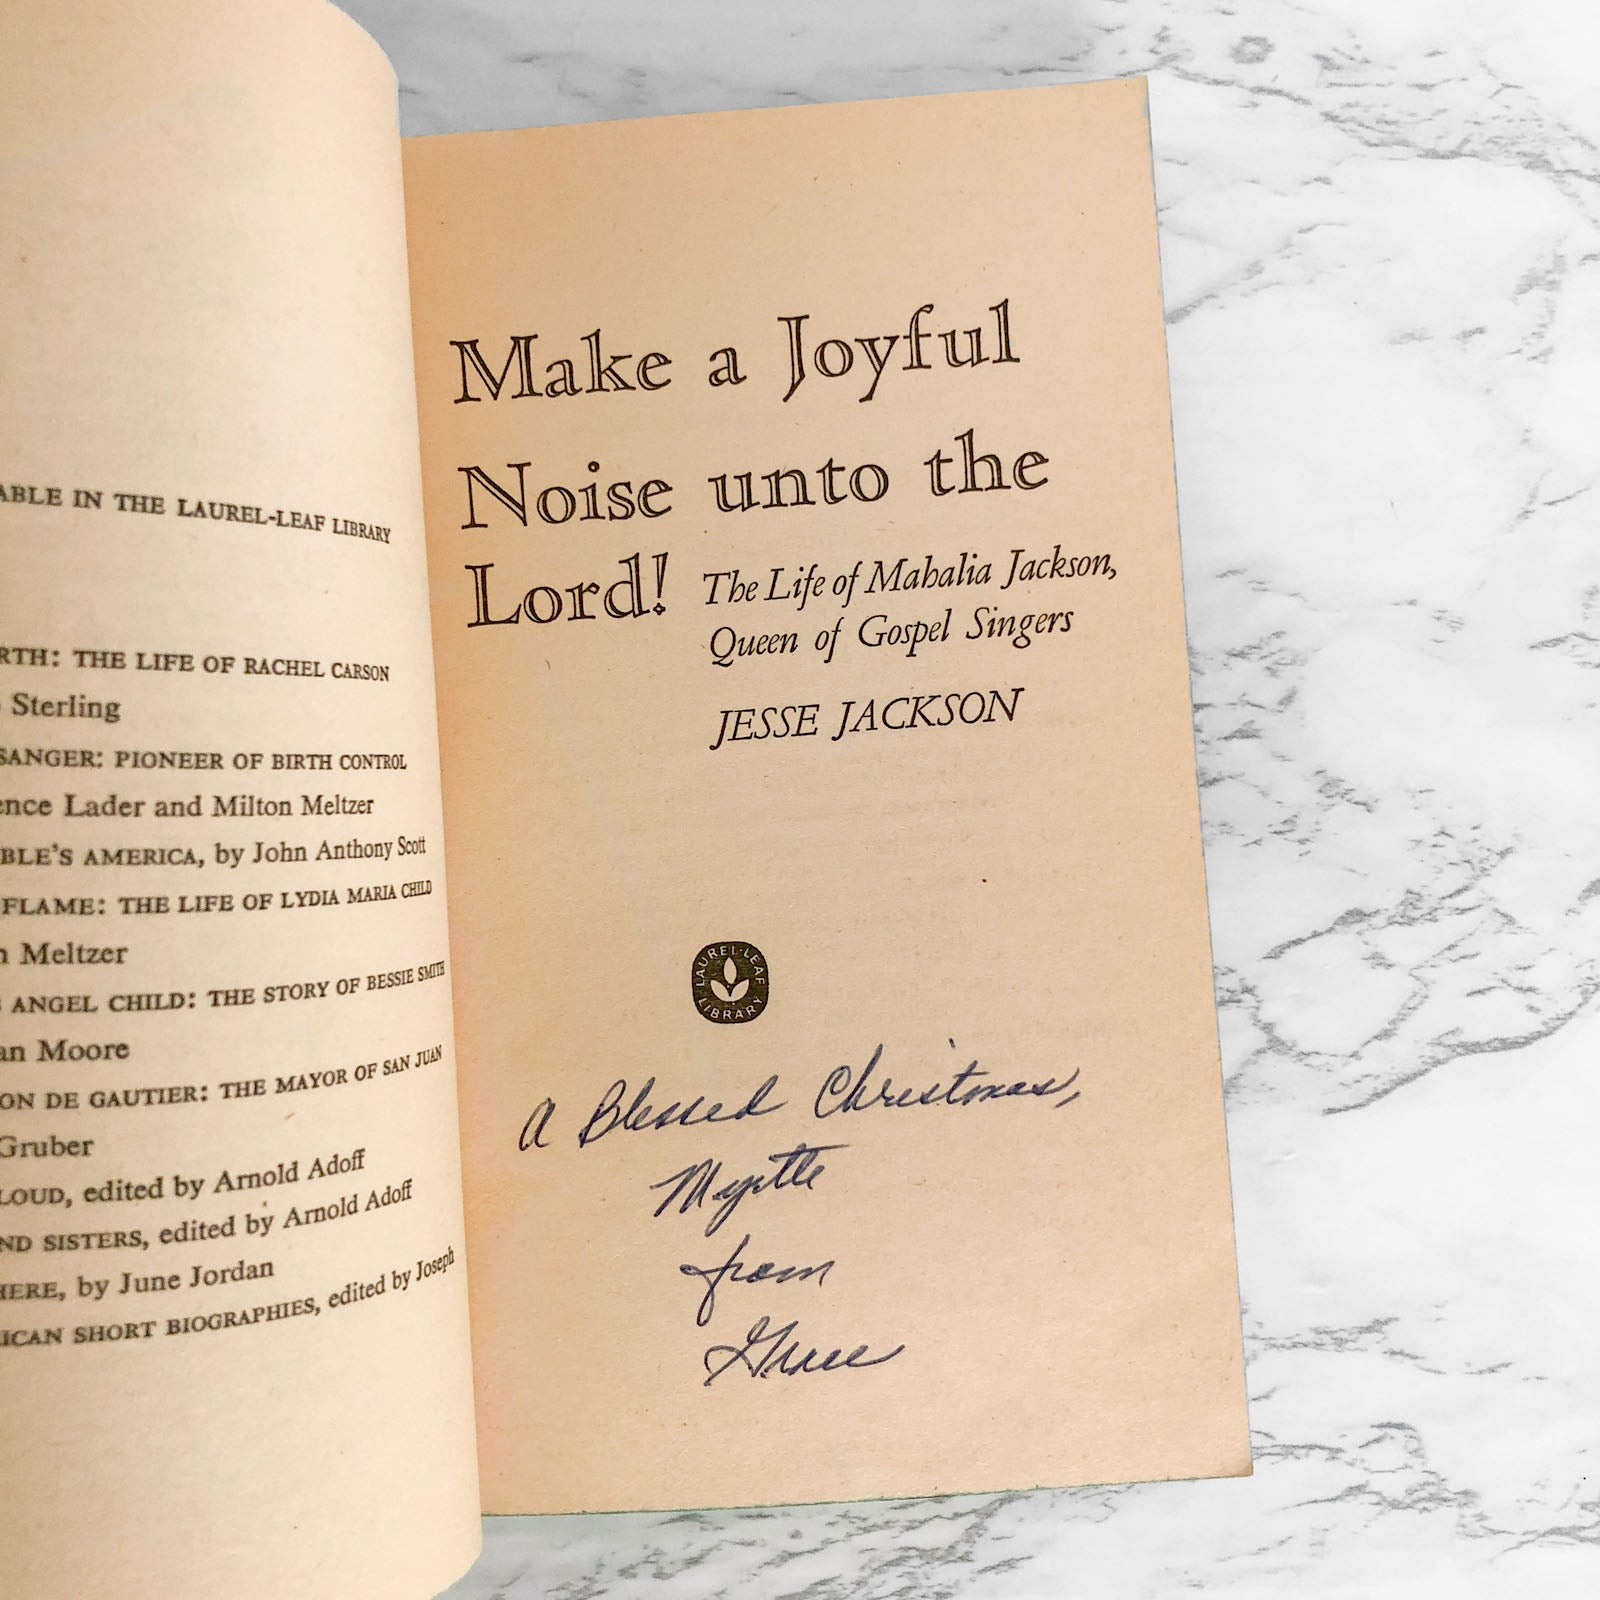 ABLE IN THE LAUREL-LEAF LIBRARY
RTH: THE LIFE OF RACHEL CARSON
Sterling
SANGER: PIONEER OF BIRTH CONTROL
ence Lader and Milton Meltzer
BLE'S AMERICA, by John Anthony Scott
FLAME: THE LIFE OF LYDIA MARIA CHILD
n Meltzer
ANGEL CHILD: THE STORY OF BESSIE SMITH
an Moore
ON DE GAUTIER: THE MAYOR OF SAN JUAN
Gruber
LOUD, edited by Arnold Adoff
ND SISTERS, edited by Arnold Adoff
HERE, by June Jordan
ICAN SHORT BIOGRAPHIES, edited by Joseph
Make a Joyful
Noise unto the
Lord!
The Life of Mahalia Jackson,
Queen of Gospel Singers
JESSE JACKSON
LAUREL-LEAF
LIBRARY
A Blessed Christmas,
Myrtle
from
Grace